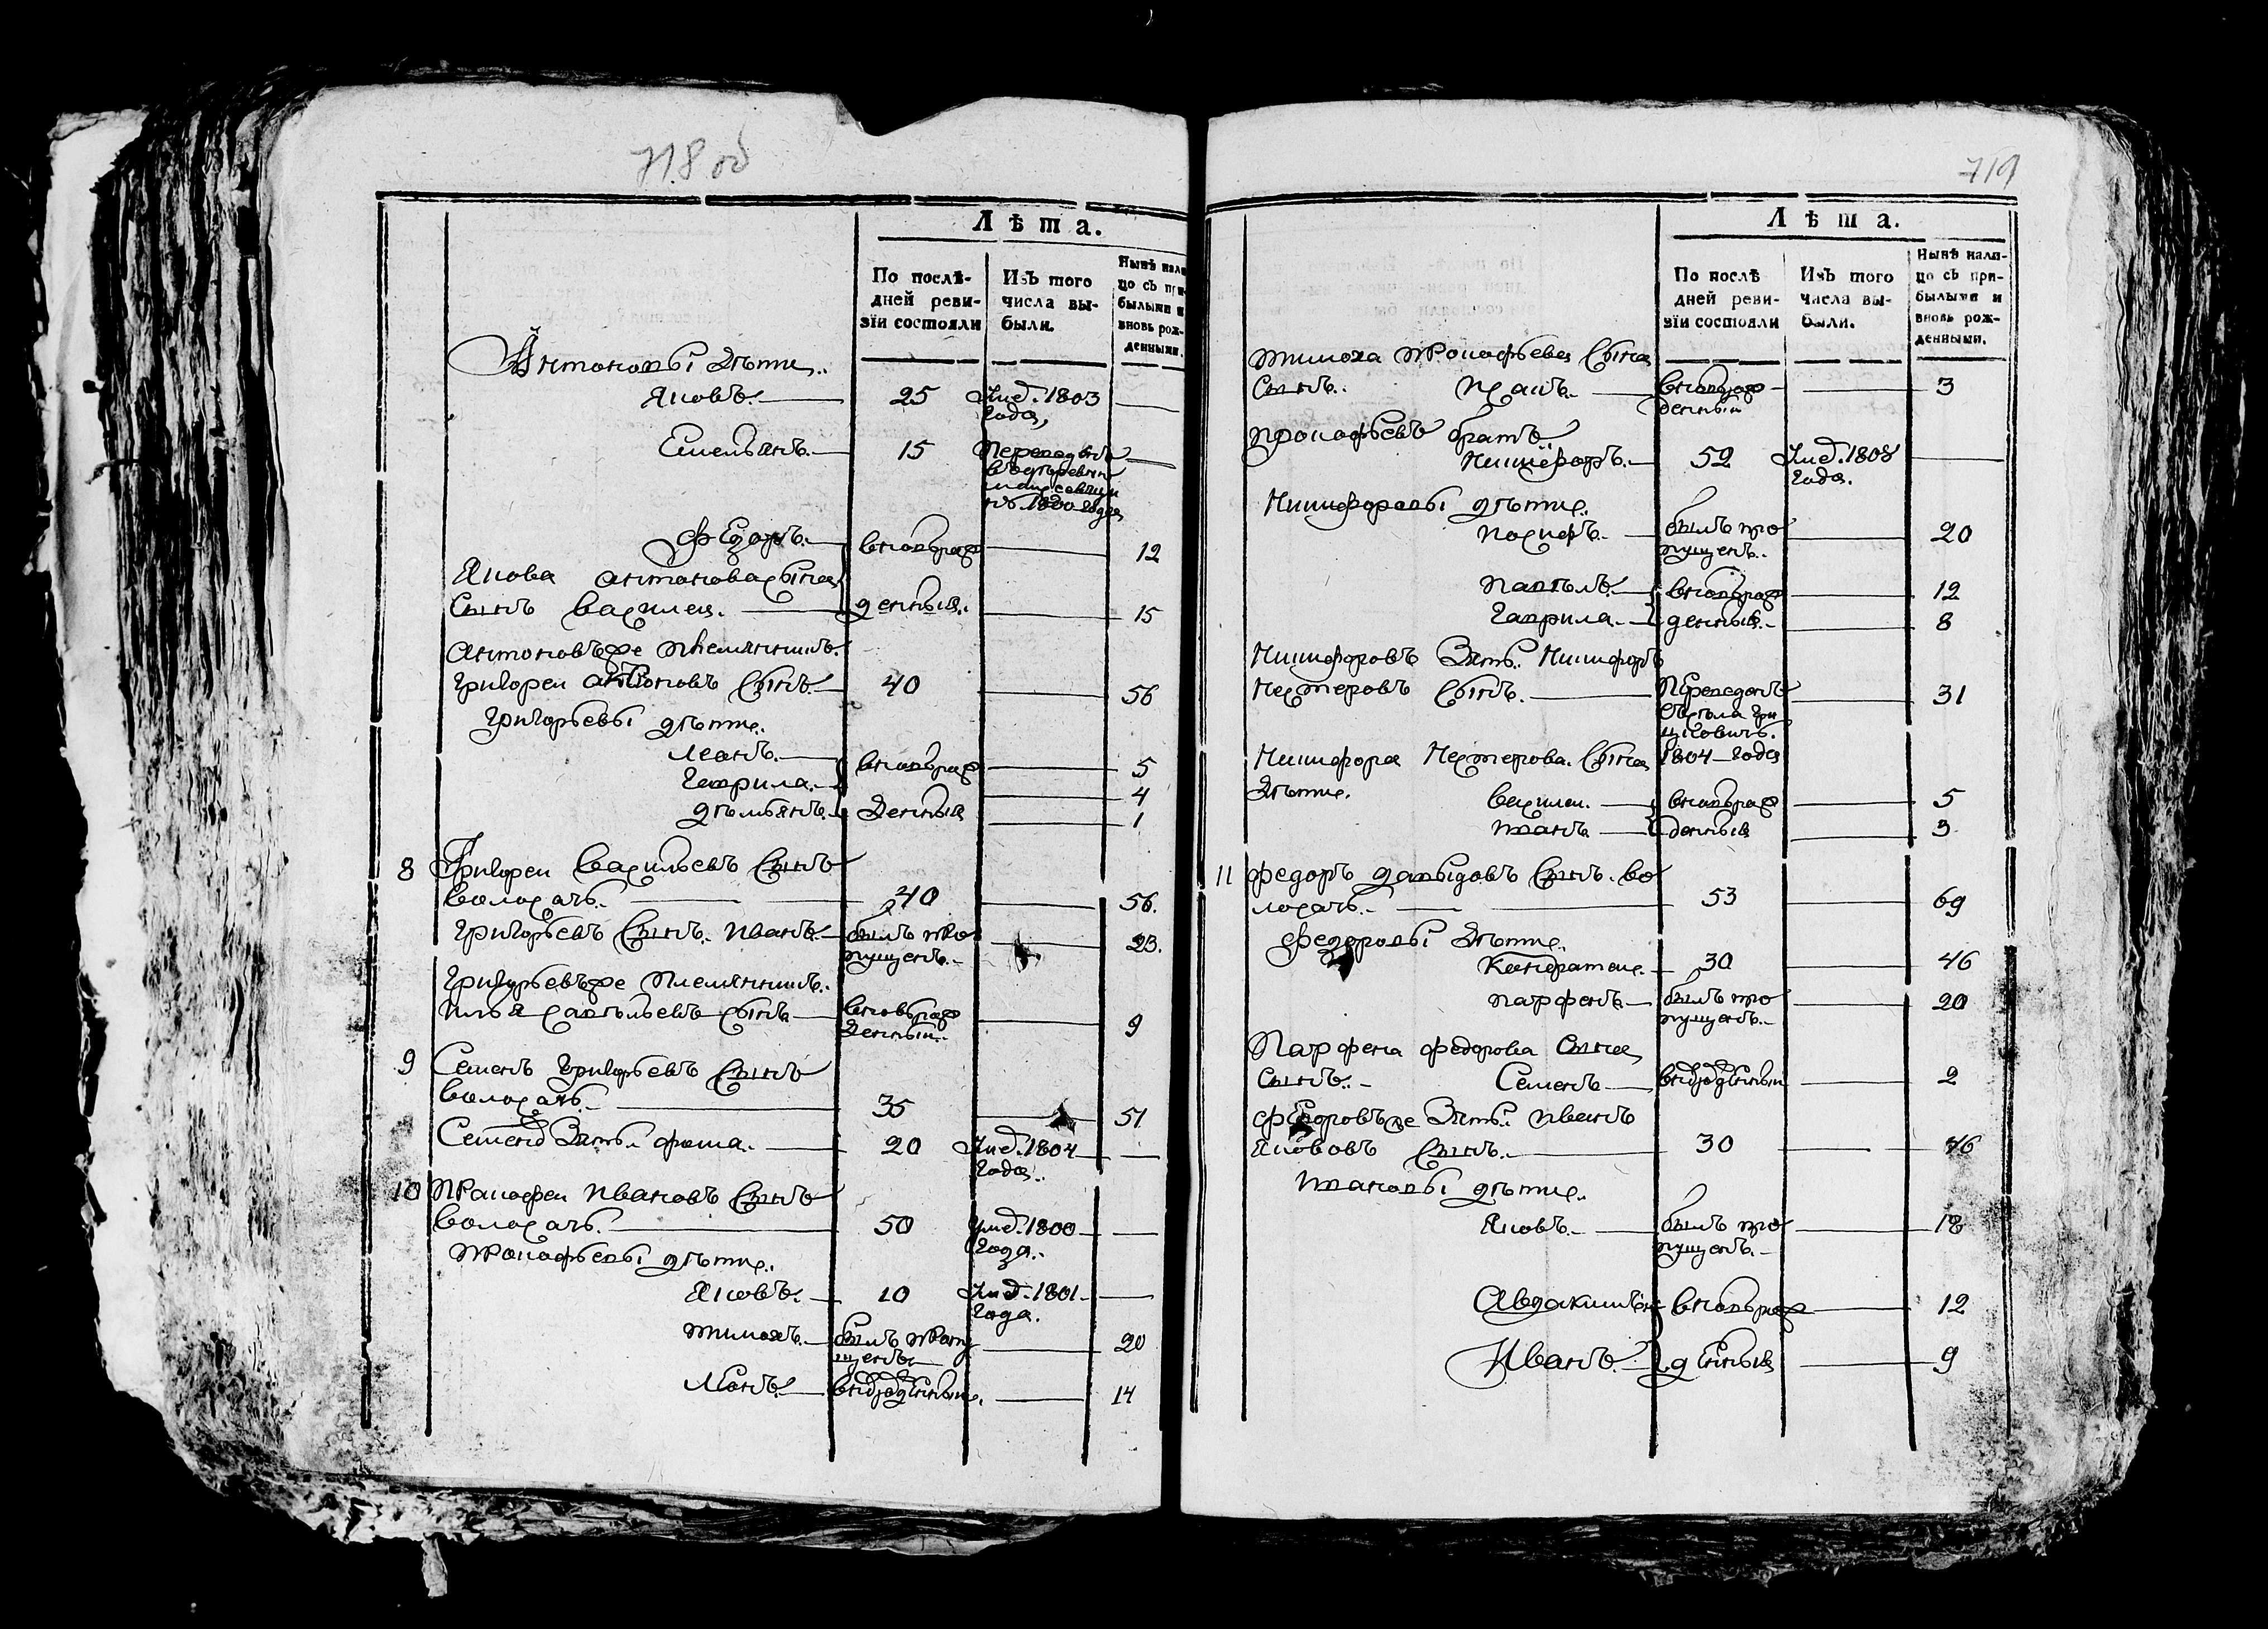 718 об
Лѣта.
По послѣ-
дней реви-
зїи состояли
Изъ того
числа вы-
были.
Нынѣ нали-
цо съ при-
былыми и
вновь рож-
денными.
Антоновы дѣти.
Яковъ. 25 Умер. 1803
года,
Емельянъ. 15
1800 года
Федоръ. вновьрож 12
Якова антонова сына
Сынъ василеи. денныя. 15
антоновъже племянникъ.
Григореи антоновъ Сынъ. 40 56
Григорьевы дѣти.
Леонъ. вновьрож 5
Гаврила. 4
дѣмьянъ. денныя 1
8 Григореи васильевъ Сынъ
волосачь. 40 56.
Григорьевъ Сынъ. иванъ. былъ про 23.
пущенъ.
Григорьевъже племянникъ.
Илья савѣльевъ сынъ вновьрож 9
денныи.
9 Семенъ григорьевъ Сынъ
волосачь. 35 51
зять фома. 20 Умер. 1804
года.
10 Пракофеи ивановъ Сынъ
волосачь. 50 Умер. 1800
года.
Пракофьевы дѣти.
Яковъ. 10 Умер. 1801
года.
былъ пропу 20
щенъ.
Леонъ. 14
719
Лѣта.
По послѣ
дней реви-
зїи состояли
Изъ того
числа вы-
были.
Нынѣ нали-
цо съ при-
былыми и
вновь рож-
денными.
Прокофьева Сына
Сынъ. Исакъ. вновьрож 3
денныи
прокофьевъ братъ
Никифоръ. 52 Умер. 1808
года.
Никифоровы дѣти.
иосифъ. былъ про 20
пущенъ.
павѣлъ. вновьрож 12
Гаврила. денныя. 8
Никифоровъ Зять. Никифоръ
Нестеровъ Сынъ. Переведенъ 31
Никифора Нестерова. Сына 1804 года
дѣти. василеи. вновьрож 5
иванъ денныя 3
11 федоръ давыдовъ Сынъ. во
лосачь. 53 69
федоровы дѣти.
Кандратеи. 30 46
парфенъ былъ про 20
пущенъ.
Парфена федорова Сына
Сынъ. Семенъ 2
федоровъже Зять. иванъ
Яковъ Сынъ. 30 46
ивановы дѣти.
Яковъ. былъ про 18
пущенъ.
вновьрож 12
Иванъ денныя 9